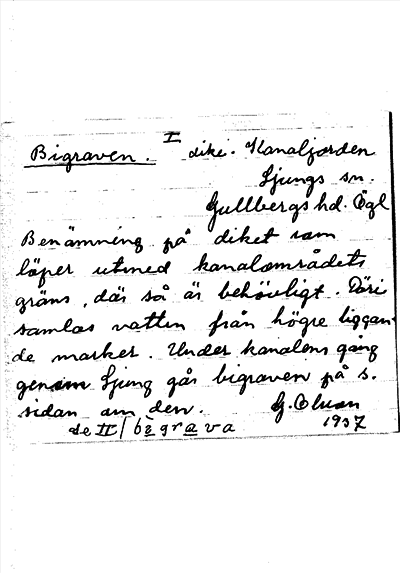 I
Bigraven. diki. Kanaljorden
Ljungs sn.
Gullbergs hd. Ögl
Benämning på diket som
löper utmed kanalområdets
gräns, där så är behövligt. Däri
samlas vatten från högre liggan-
de marker. Under kanalens gång
genom Ljung går bigraven på s.
sidan om den. G. Olsson
de II / bigrava 1937